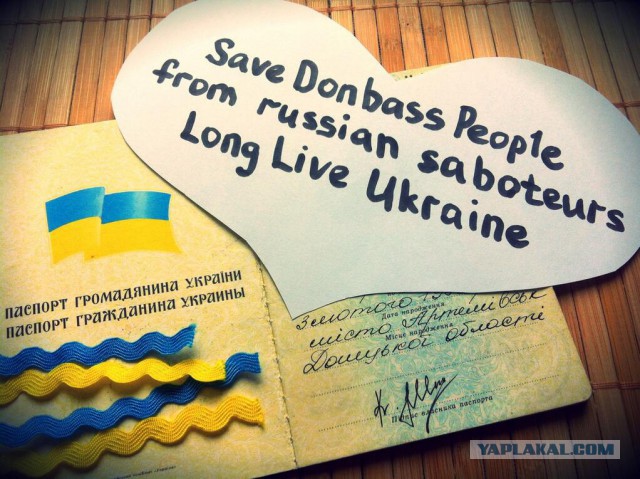 Save Donbass People
from russian saboteurs
Long Live Ukraine
ПАСПОРТ ГРОМАДЯНИНА УКРАЇНИ
ПАСПОРТ ГРАЖДАНИНА УКРАИНЫ
Дата народження
місто Артемівськ
Місце народження
Донецької області
Підпис власника паспорта
YAPLAKAL.COM